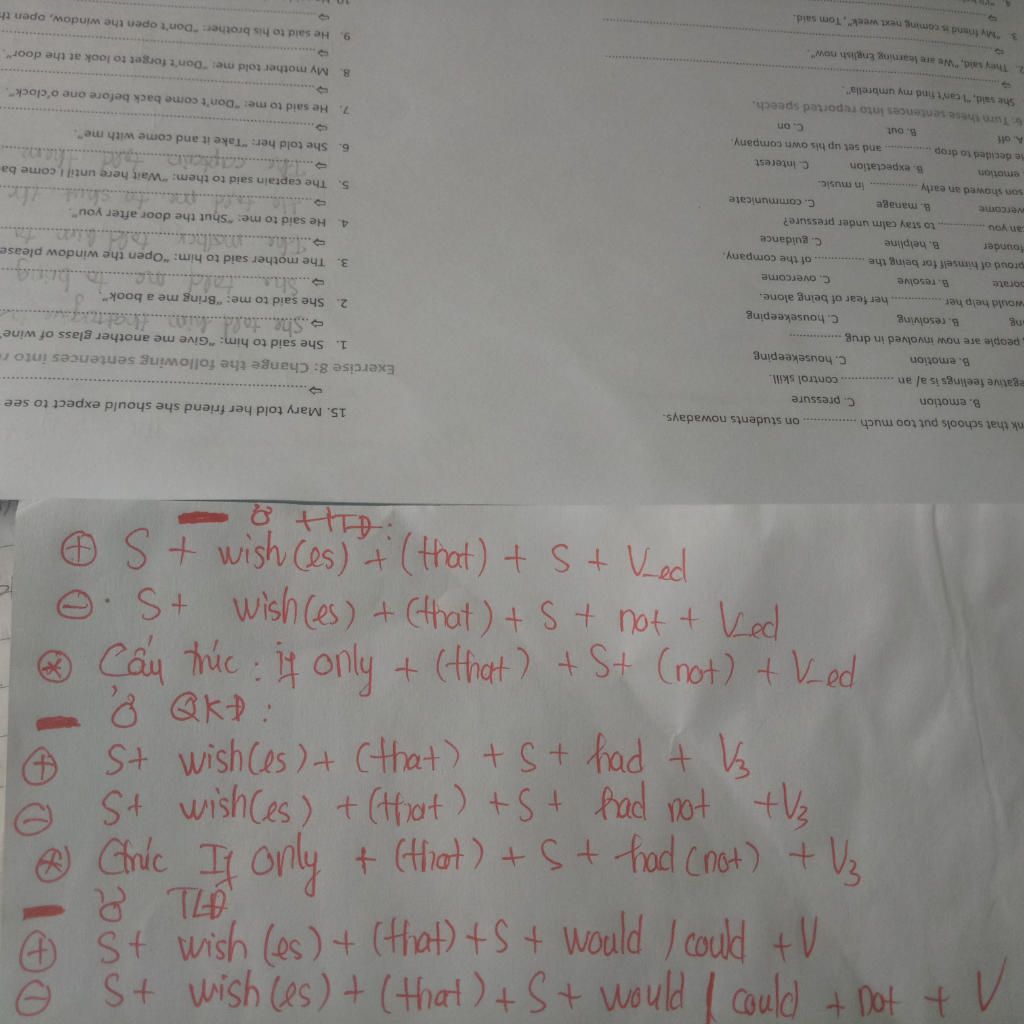 nk that schools put too much ............... on students nowadays.
B. emotion C. pressure
egative feelings is a/ an ............... control skill.
B. emotion C. housekeeping
people are now involved in drug ...............
B. resolving C. housekeeping
would help her ............... her fear of being alone.
B. resolve C. overcome
proud of himself for being the ............... of the company.
founder B. helpline C. guidance
can you ............... to stay calm under pressure?
vercome B. manage C. communicate
son showed an early ............... in music.
emotion B. expectation C. interest
e decided to drop ............... and set up his own company.
A. off B. out C. on
6: Turn these sentences into reported speech.
She said, "I can't find my umbrella".
2. They said, "We are learning English now".
3. "My friend is coming next week", Tom said.
15. Mary told her friend she should expect to see
Exercise 8: Change the following sentences into r
1. She said to him: "Give me another glass of wine"
She told him
2. She said to me: "Bring me a book".
She told me to bring
3. The mother said to him: "Open the window please
The mother told him to
4. He said to me: "Shut the door after you".
He told me to shut the
5. The captain said to them: "Wait here until I come ba
The captain told them
6. She told her: "Take it and come with me".
7. He said to me: "Don't come back before one o'clock".
8. My mother told me: "Don't forget to look at the door".
9. He said to his brother: "Don't open the window, open th
10.
- Ở HTĐ:
(+) S + wish(es) + (that) + S + V_ed
(-) S + wish(es) + (that) + S + not + V_ed
(*) Cấu trúc: If only + (that) + S + (not) + V_ed
- Ở QKĐ:
(+) S + wish(es) + (that) + S + had + V3
(-) S + wish(es) + (that) + S + had not + V3
(*) Ctrúc If only + (that) + S + had (not) + V3
- Ở TLĐ
(+) S + wish (es) + (that) + S + would / could + V
(-) S + wish (es) + (that) + S + would / could + not + V